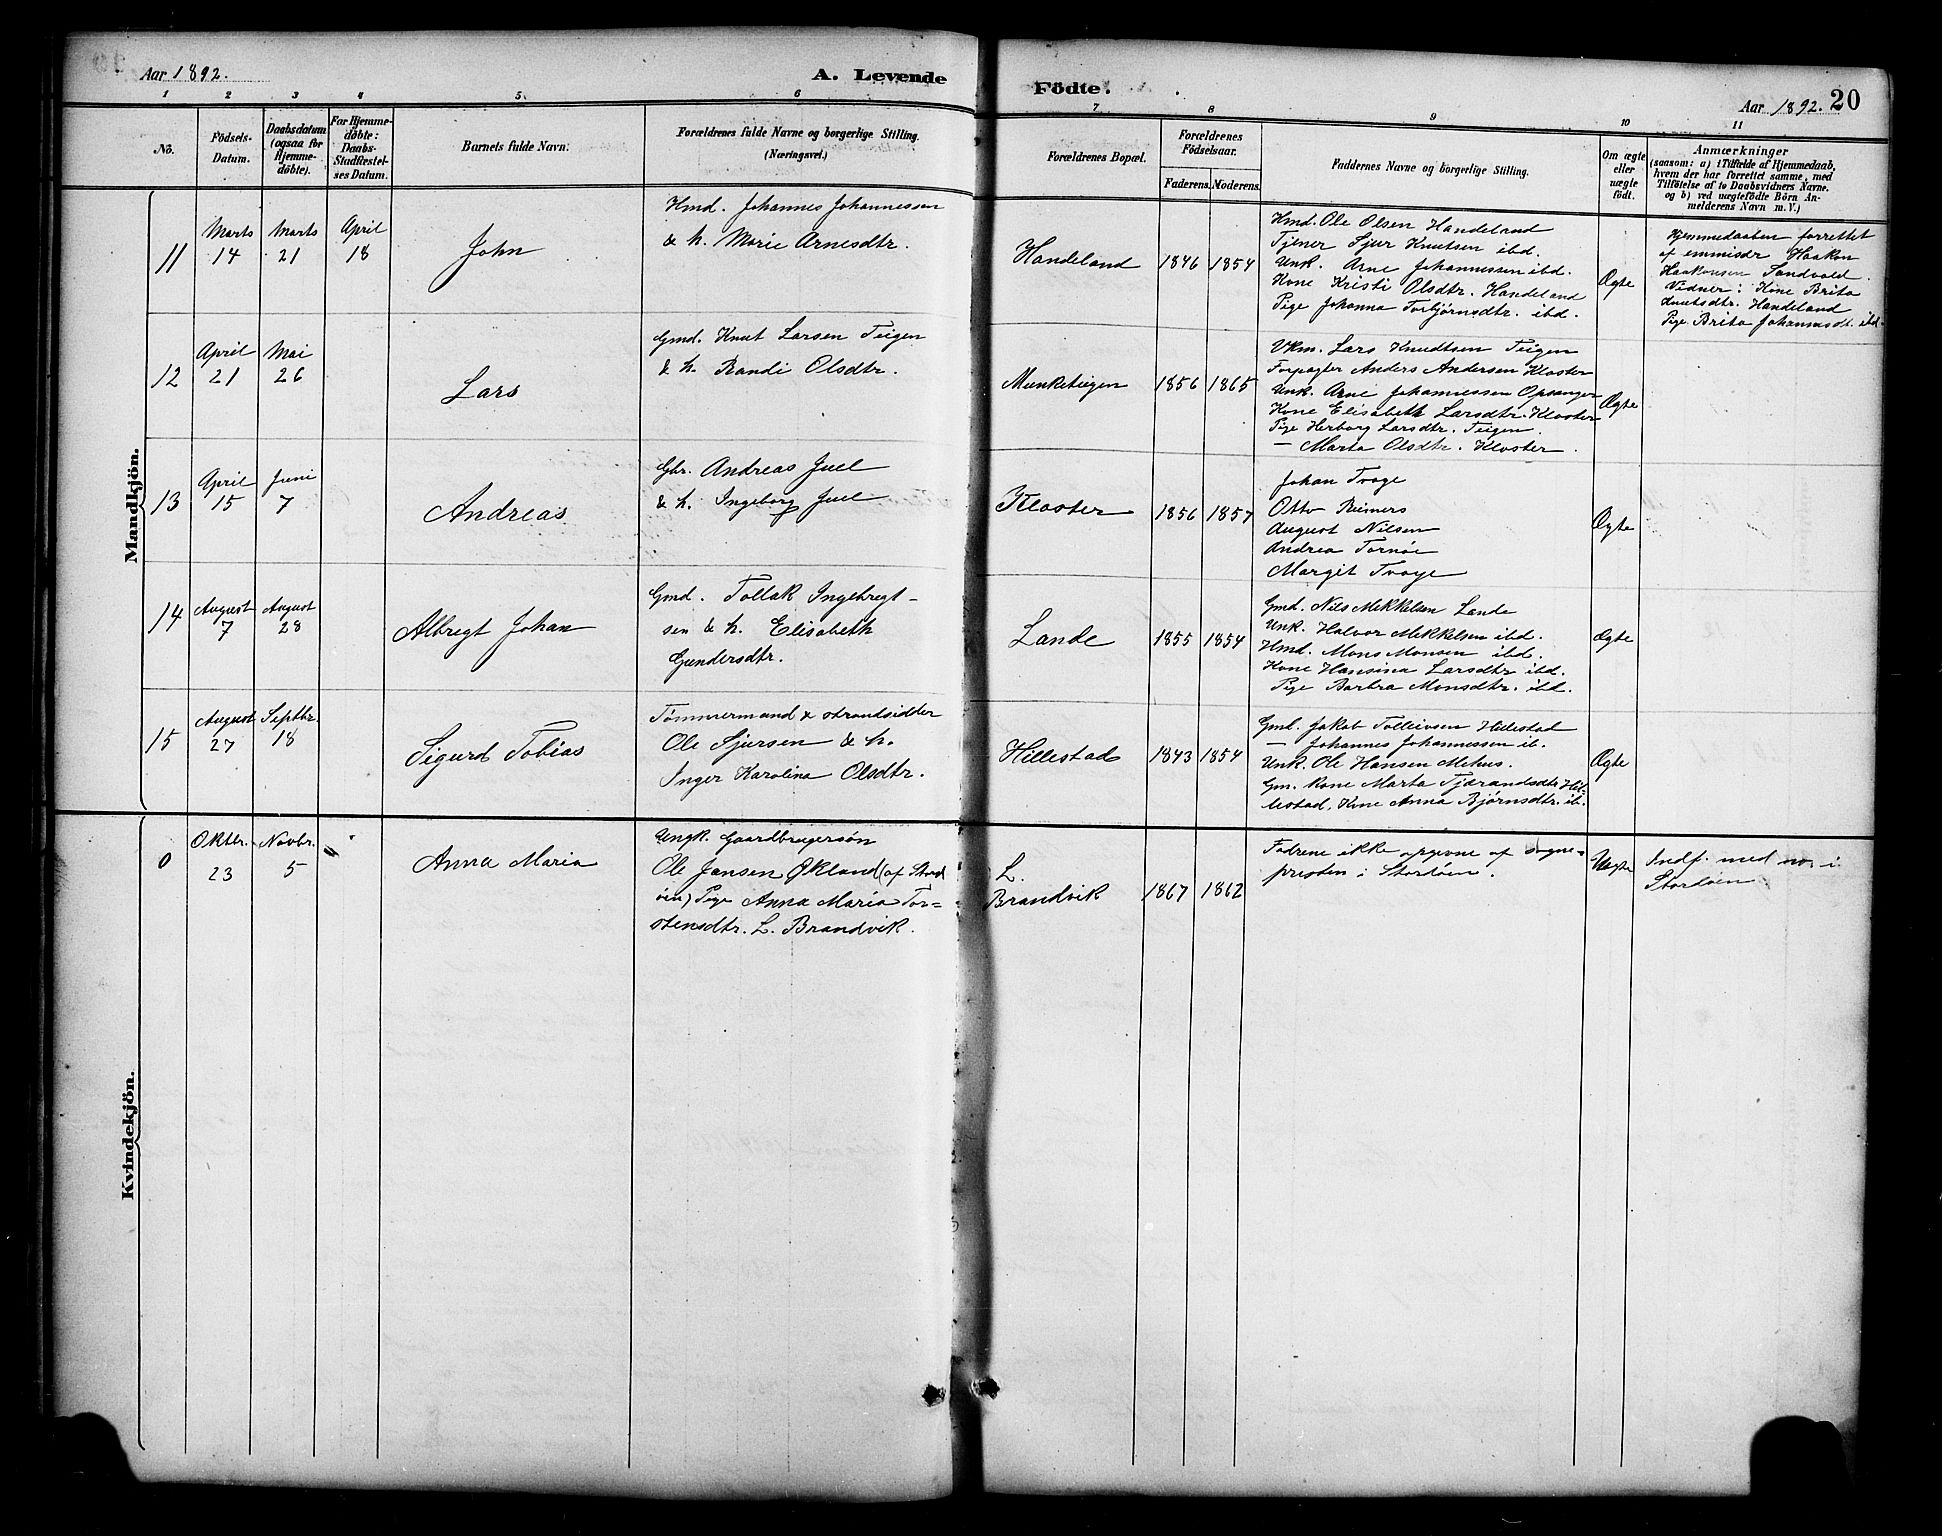 Aar 1892.
A. Levende
Födte.
Aar 1892. 20
1 2 3 4 5 6 7 8 9 10 11
Nö.
Födsels-
Datum.
Daabsdatum
(ogsaa for
Hjemme-
döbte).
For Hjemme-
döbte:
Daabs-
Stadfæstel-
ses Datum.
Barnets fulde Navn.
Forældrenes fulde Navne og borgerlige Stilling.
(Næringsvei.)
Forældrenes Bopæl.
Forældrenes
Födselsaar.
Faderens. Moderens.
Faddernes Navne og borgerlige Stilling.
Om ægte
eller
uægte
födt.
Anmærkninger
(saasom: a) i Tilfælde af Hjemmedaab,
hvem der har forrettet samme, med
Tilföielse af to Daabsvidners Navne.
og b) ved uægtefödte Börn An-
melderens Navn m. V.)
Mandkjön.
11
Marts
14
Marts
21
April
18
John
Hmd. Johannes Johannessen
& h. Marie Arnesdtr.
Handeland
1846 1854
Hmd. Ole Olsen Handeland
Tjener Sjur Knutsen ibd.
Unk. Arne Johannessen ibd.
Kone Kristi Olsdtr. Handeland
Pige Johanna Torbjørnsdtr. ibd.
Ægte
Hjemmedaaben forrettet
af emmisær Haakon
Haakonsen Sandvold.
Vidner: Kone Brita
Knutsdtr. Handeland
Pige Brita Johannesdt. ibd.
12
April
21
Mai
26
Lars
Gmd. Knut Larsen Teigen
& h. Randi Olsdtr.
Munketeigen
1856 1865
Vkm. Lars Knudtsen Teigen
Forpagter Anders Andersen Kloster
Unk. Arne Johannessen Opsanger
Kone Elisabeth Larsdtr. Kloster
Pige Herborg Larsdtr. Teigen.
— Marta Olsdtr. Kloster.
Ægte
13
April
15
Juni
7
Andreas
Gbr. Andreas Juel
& h. Ingeborg Juel
Kloster
1856 1857
Johan Troye
Otto Reimers
August Nilsen
Andrea Tornøe
Margit Troye
Ægte
14
August
7
August
28
Albregt Johan
Gmd. Tollak Ingebregt-
sen & h. Elisabeth
Gundersdtr.
Lande
1855 1854
Gmd. Nils Mekkelsen Lande
Unk. Halvor Mekkelsen ibd.
Hmd. Mons Monsen ibd.
Kone Hansina Larsdtr ibd.
Pige Barbra Monsdtr. ibd.
Ægte
15
August
27
Septbr.
18
Sigurd Tobias
Tømmermand & strandsidder
Ole Sjursen & h.
Inger Karolina Olsdtr.
Hillestad
1843 1854
Gmd. Jakob Tolleivsen Hillestad
— Johannes Johannessen ib.
Unk. Ole Hansen Mehus.
Gm. kone Marta Tjærandsdtr. Hil-
lestad, Kone Anna Bjørnsdtr. ib.
Ægte
Kvindekjön.
0
Oktbr.
23
Novbr.
5
Anna Maria
Ungk. Gaardbrugersøn
Ole Jensen Økland (af Stord
øen) Pige Anna Maria Tor=
stensdtr. L. Brandvik.
L.
Brandvik
1867 1862
Fadrene ikke opgivne af sogne=
presten i Stordøen.
Uægte
Indf. med no. i
Stordøen